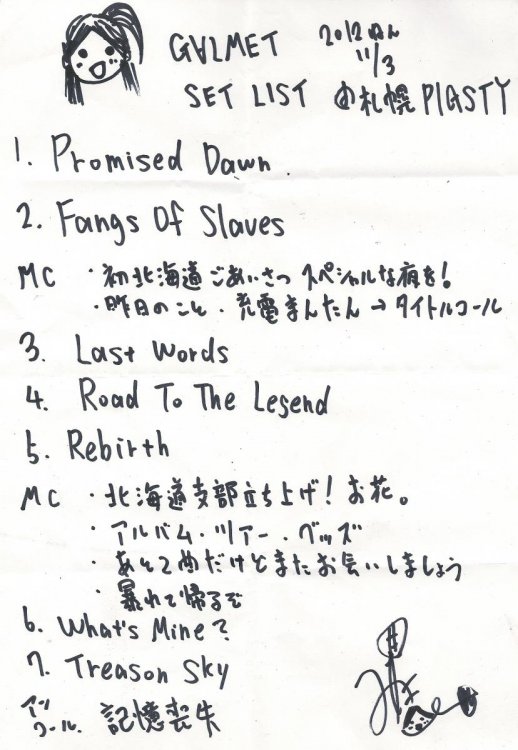 GALMET 2012ねん
11/3
SET LIST @札幌 PIGSTY
1. Promised Dawn
2. Fangs Of Slaves
MC ・初北海道ごあいさつ スペシャルな夜を!
・昨日のこと・充電まんたん→タイトルコール
3. Last Words
4. Road To The Legend
5. Rebirth
MC ・北海道支部立ち上げ! お花。
・アルバム・ツアー・グッズ
・あと2曲だけどまたお会いしましょう
・暴れて帰るぞ
6. What's Mine?
7. Treason Sky
アンコール. 記憶喪失